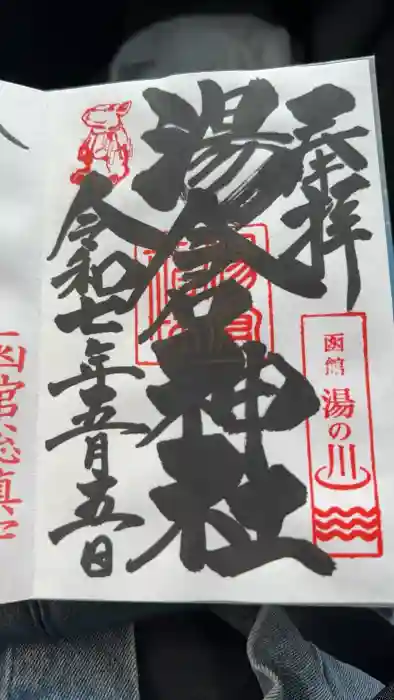 奉拝
湯倉神社
令和七年五月五日
函館
湯の川
函館総鎮守